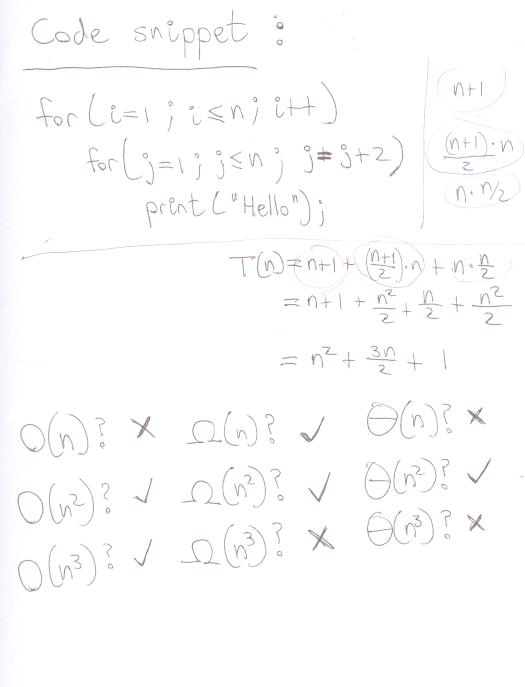 Code snippet :
for (i=1 ; i≤n; i++)
n+1
for(j=1; j≤n; j=j+2)
(n+1)/2 · n
print("Hello");
n · n/2
T(n) = n+1 + (n+1/2)·n + n·n/2
= n+1 + n²/2 + n/2 + n²/2
= n² + 3n/2 + 1
O(n)? × Ω(n)? ✓ Θ(n)? ×
O(n²)? ✓ Ω(n²)? ✓ Θ(n²)? ✓
O(n³)? ✓ Ω(n³)? × Θ(n³)? ×